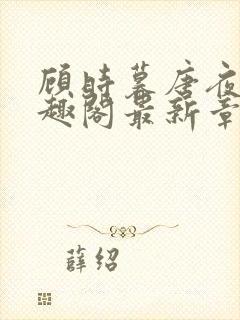 顾时暮唐夜
趣阁最新章
薛绍